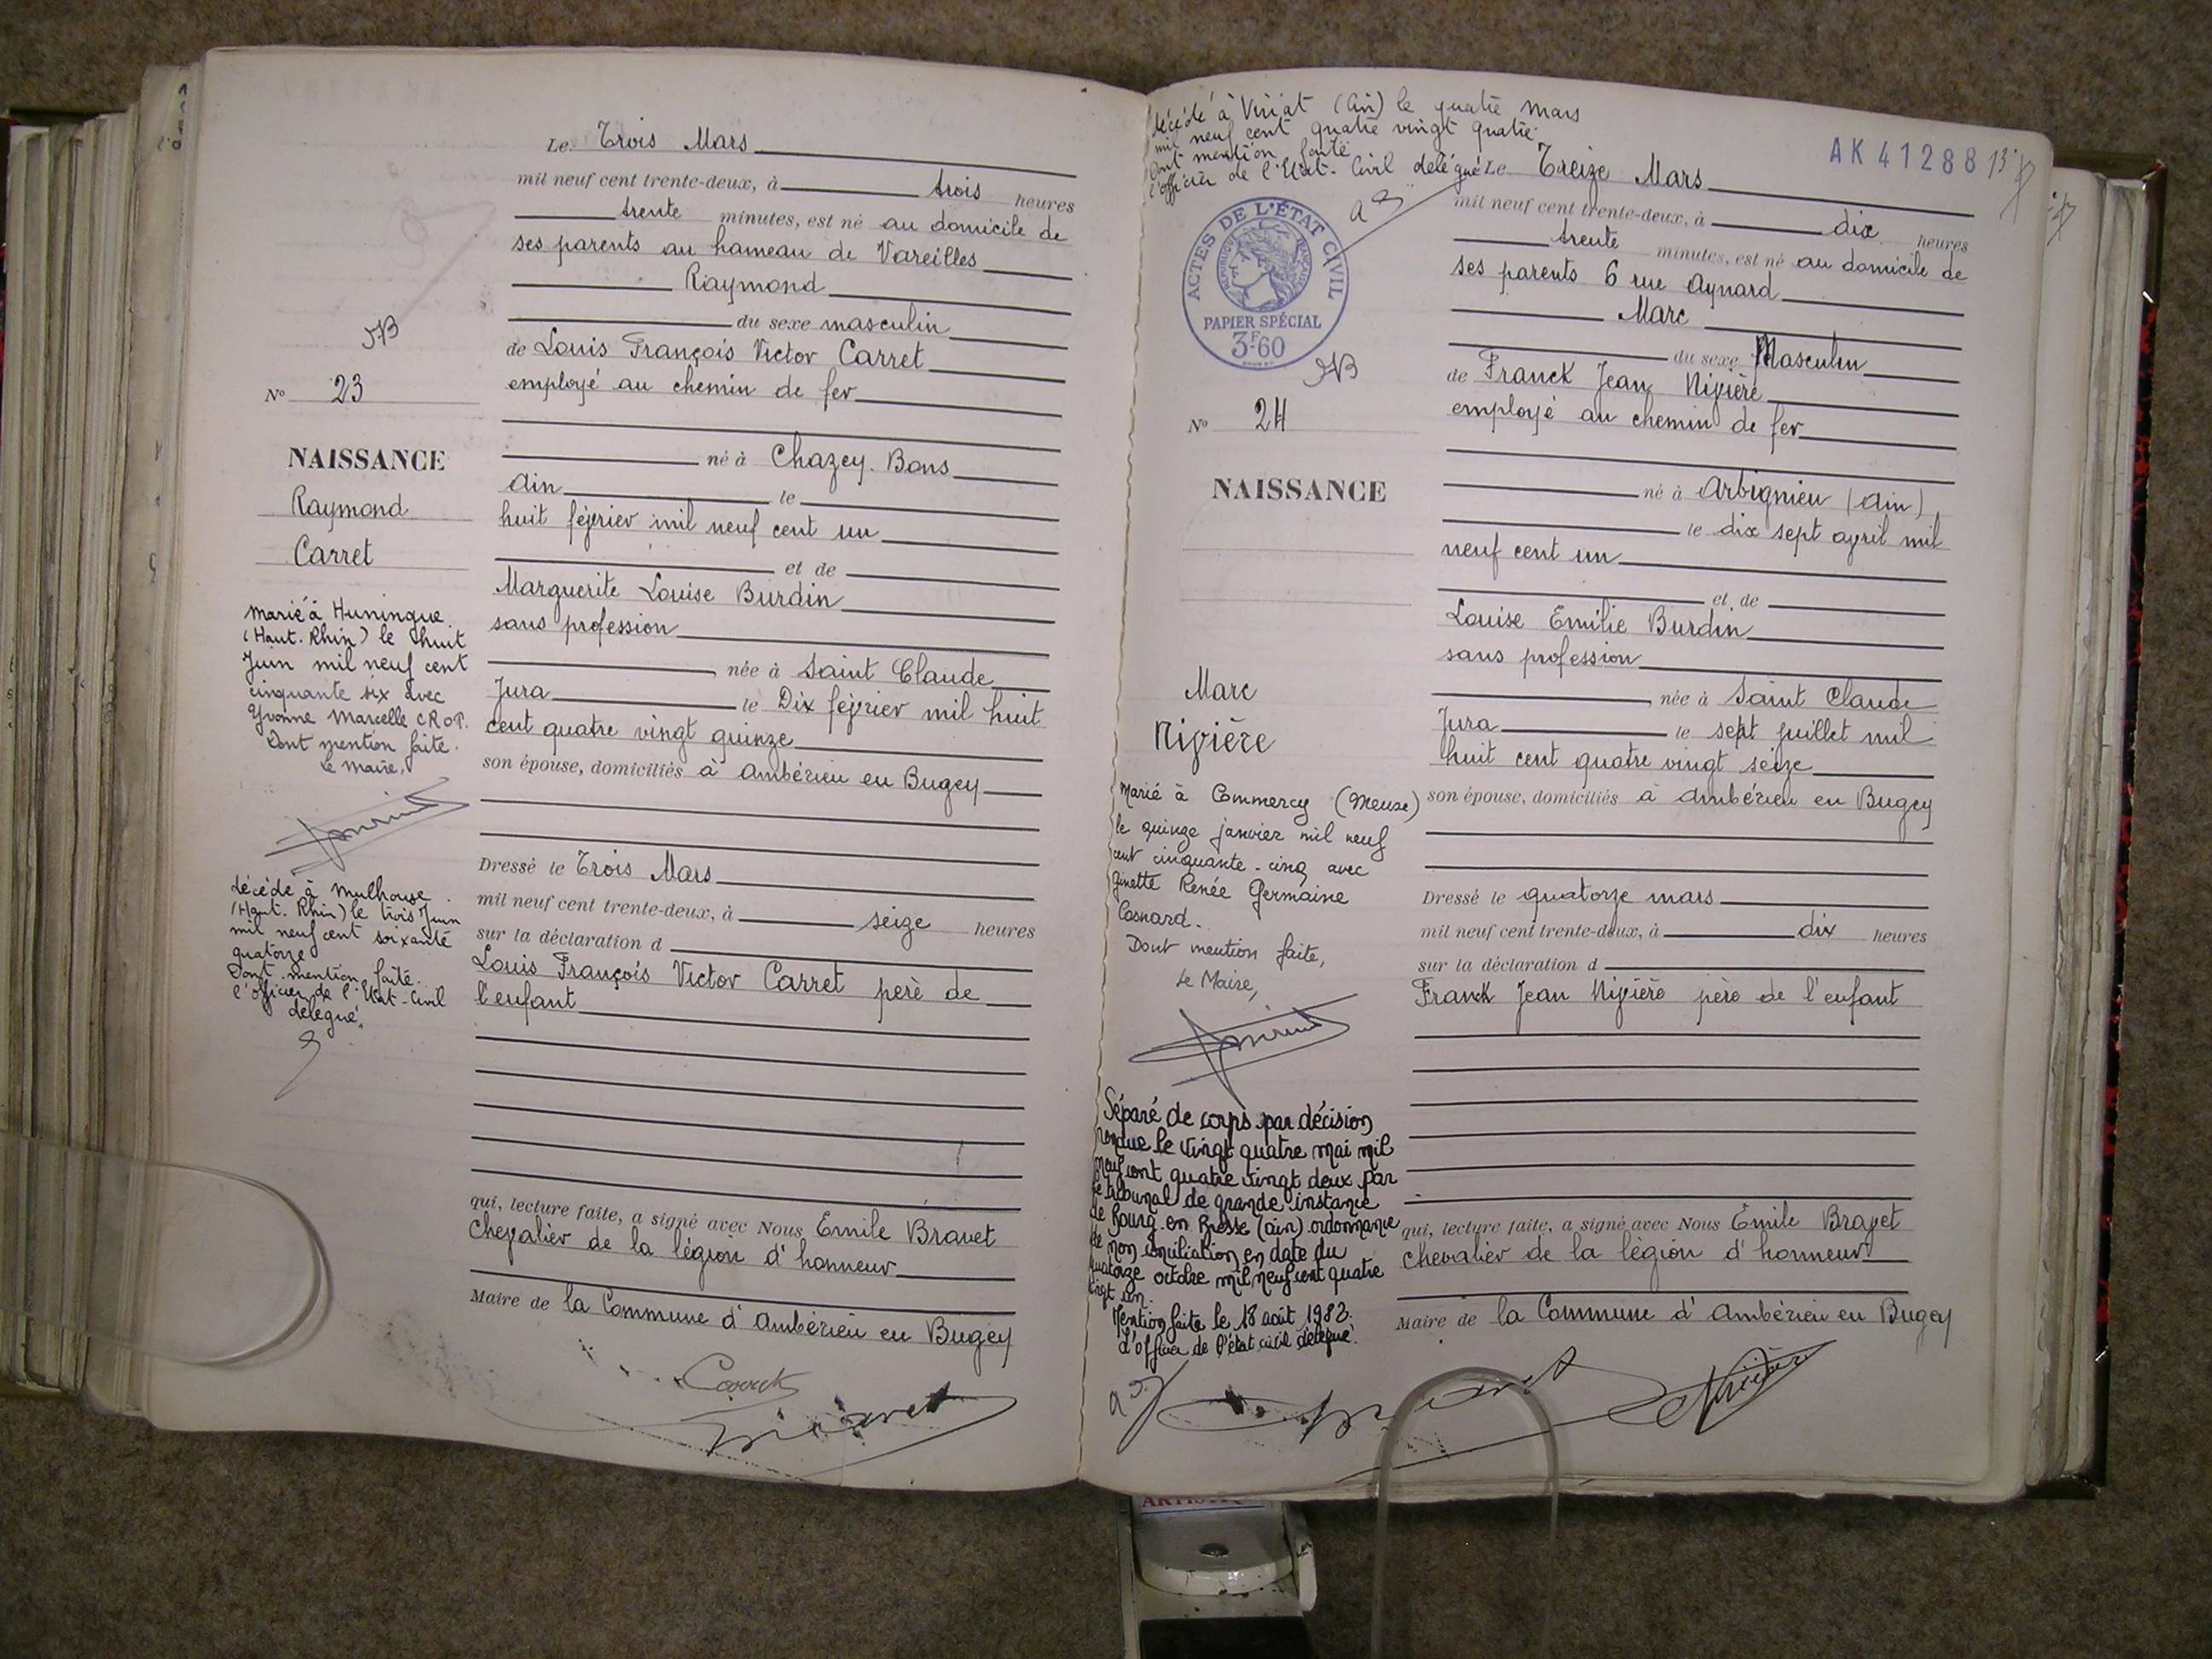 Le Trois Mars
mil neuf cent trente-deux, à trois heures
trente minutes, est né au domicile de
ses parents au hameau de Vareilles
Raymond
du sexe masculin
de Louis François Victor Carret
employé au chemin de fer
né à Chazey-Bons
Ain le
huit février mil neuf cent un
et de
Marguerite Louise Burdin
sans profession
née à Saint Claude
Jura le Dix février mil huit
cent quatre vingt quinze
son épouse, domiciliés à Ambérieu en Bugey
Dressé le Trois Mars
mil neuf cent trente-deux, à seize heures
sur la déclaration d
Louis François Victor Carret père de
l'enfant
qui, lecture faite, a signé avec Nous Emile Bravet
Chevalier de la légion d'honneur
Maire de la Commune d'Ambérieu en Bugey
Carret
Bravet
N° 23
NAISSANCE
Raymond
Carret
Marié à Huningue
(Haut-Rhin) le huit
Juin mil neuf cent
cinquante six avec
Yvonne Marcelle CROT.
Dont mention faite.
Le Maire,
décédé à Mulhouse
(Haut-Rhin) le trois Juin
mil neuf cent soixante
quatorze
Dont mention faite.
l'officier de l'Etat-Civil
délégué,
décédé à Viriat (Ain) le quatre mars
mil neuf cent quatre vingt quatre
Dont mention faite
l'officier de l'Etat-Civil délégué
AK 41288
ACTES DE L'ÉTAT CIVIL
RÉPUBLIQUE FRANÇAISE
PAPIER SPÉCIAL
3F.60
Le Treize Mars
mil neuf cent trente-deux, à dix heures
trente minutes, est né au domicile de
ses parents 6 rue Aynard
Marc
du sexe Masculin
de Franck Jean Nivière
employé au chemin de fer
né à Arbignieu (Ain)
le dix sept avril mil
neuf cent un
et de
Louise Emilie Burdin
sans profession
née à Saint Claude
Jura le sept juillet mil
huit cent quatre vingt seize
son épouse, domiciliés à Ambérieu en Bugey
Dressé le quatorze mars
mil neuf cent trente-deux, à dix heures
sur la déclaration d
Franck Jean Nivière père de l'enfant
qui, lecture faite, a signé avec Nous Emile Bravet
Chevalier de la légion d'honneur
Maire de la Commune d'Ambérieu en Bugey
Bravet
Nivière
N° 24
NAISSANCE
Marc
Nivière
Marié à Commercy (Meuse)
le quinze janvier mil neuf
cent cinquante-cinq avec
Ginette Renée Germaine
Casnard.
Dont mention faite,
Le Maire,
Séparé de corps par décision
rendue le vingt quatre mai mil
neuf cent quatre vingt deux par
le tribunal de grande instance
de Bourg en Bresse (ain) ordonnance
de non conciliation en date du
quatorze octobre mil neuf cent quatre
vingt un.
Mention faite le 18 août 1983.
L'officier de l'état civil délégué.